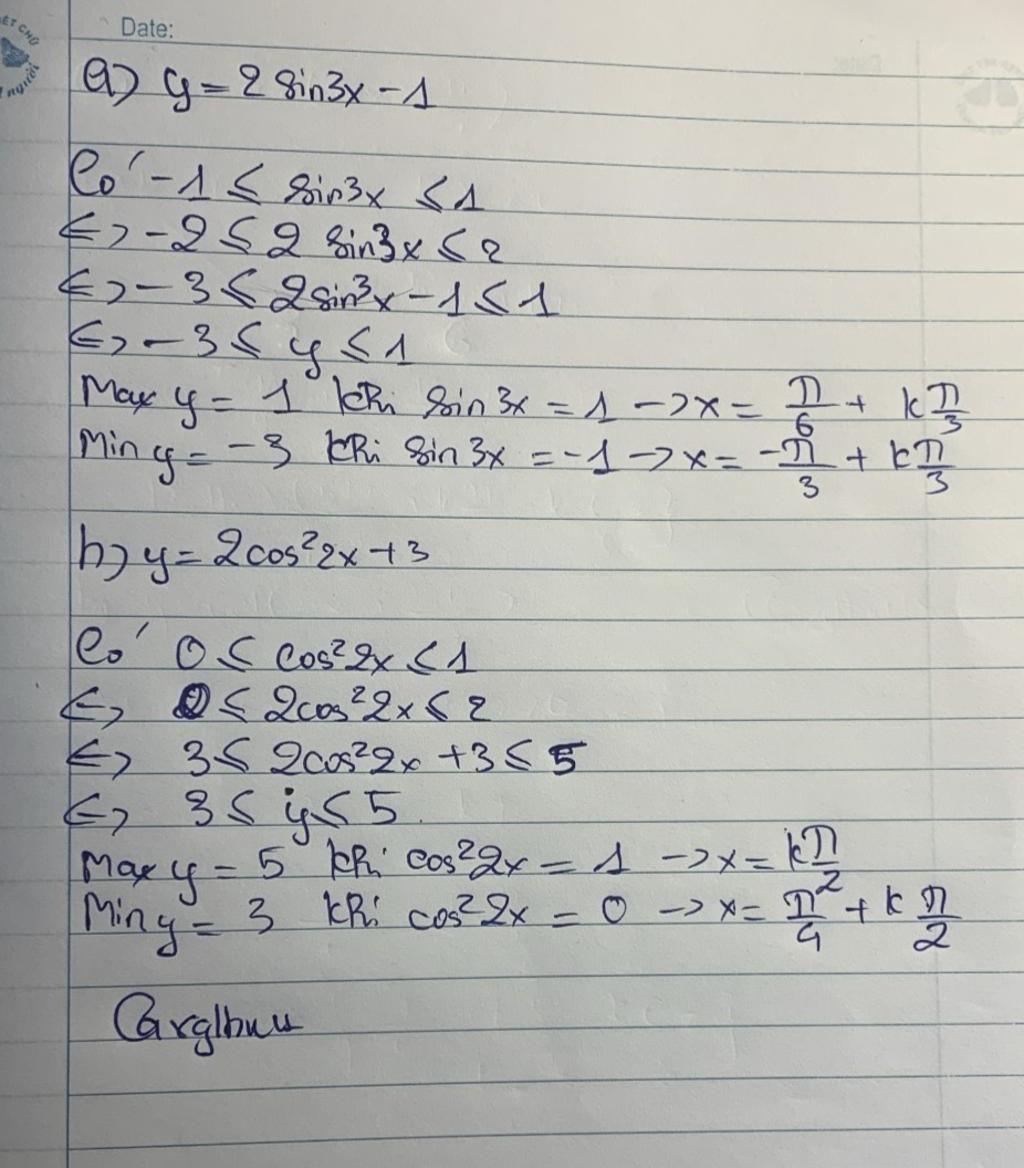 ẾT CHỮ
NGƯỜI
Date:
a) y = 2 sin3x - 1
Có -1 ≤ sin3x ≤ 1
<=> -2 ≤ 2 sin3x ≤ 2
<=> -3 ≤ 2sin3x - 1 ≤ 1
<=> -3 ≤ y ≤ 1
Max y = 1 khi sin 3x = 1 -> x = π/6 + kπ/3
Min y = -3 khi sin 3x = -1 -> x = -π/3 + kπ/3
b) y = 2cos²2x + 3
Có 0 ≤ cos²2x ≤ 1
<=> 0 ≤ 2cos²2x ≤ 2
<=> 3 ≤ 2cos²2x + 3 ≤ 5
<=> 3 ≤ y ≤ 5
Max y = 5 khi cos²2x = 1 -> x = kπ/2
Min y = 3 khi cos²2x = 0 -> x = π/4 + k π/2